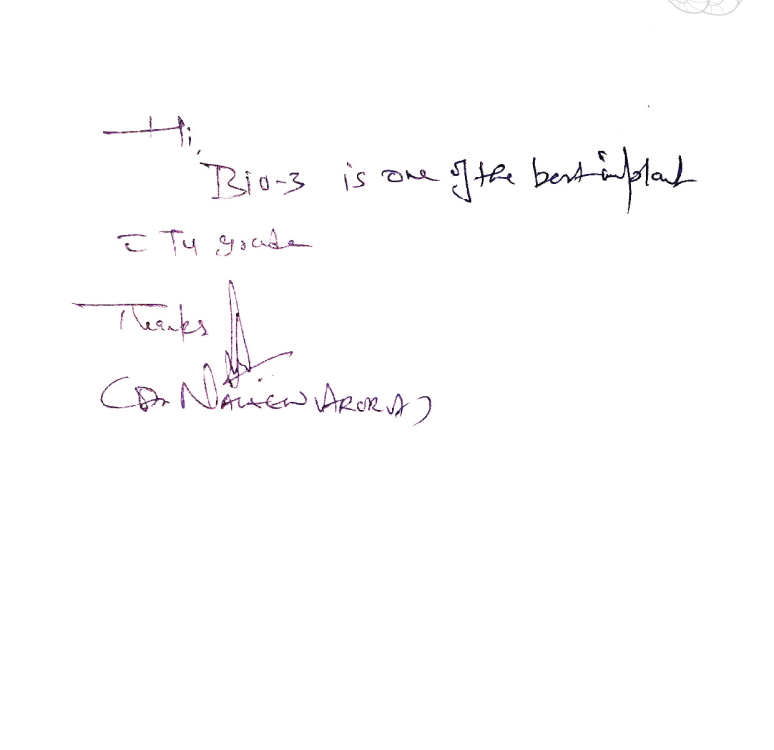 Hi,
Bio-3 is one of the best implant
c̄ T4 grade
Thanks
(Dr NAVEEN ARORA)